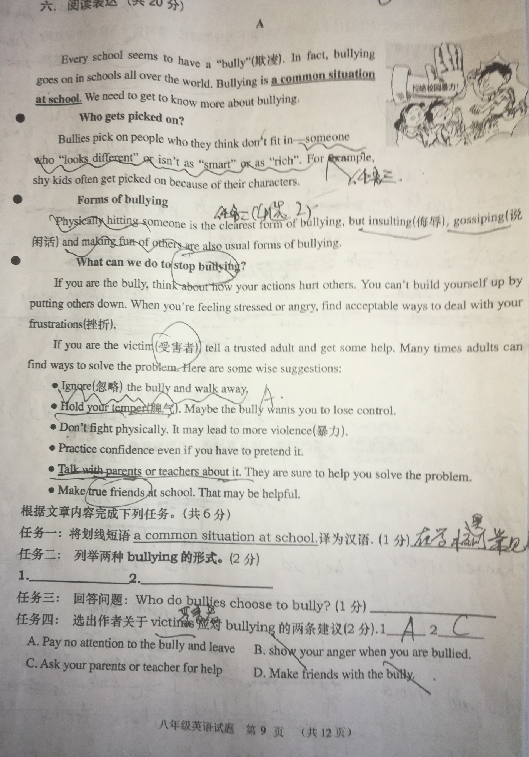 六．阅读表达（共 20 分）
A
Every school seems to have a “bully”(欺凌). In fact, bullying
goes on in schools all over the world. Bullying is a common situation
at school. We need to get to know more about bullying.
拒绝校园暴力!
Who gets picked on?
Bullies pick on people who they think don't fit in—someone
who “looks different” or isn't as “smart” or as “rich”. For example,
shy kids often get picked on because of their characters.
任务三.
Forms of bullying
任务二
Physically hitting someone is the clearest form of bullying, but insulting(侮辱), gossiping(说
闲话) and making fun of others are also usual forms of bullying.
What can we do to stop bullying?
If you are the bully, think about how your actions hurt others. You can't build yourself up by
putting others down. When you're feeling stressed or angry, find acceptable ways to deal with your
frustrations(挫折).
If you are the victim(受害者), tell a trusted adult and get some help. Many times adults can
find ways to solve the problem. Here are some wise suggestions:
● Ignore(忽略) the bully and walk away. A.
● Hold your temper(脾气). Maybe the bully wants you to lose control.
● Don't fight physically. It may lead to more violence(暴力).
● Practice confidence even if you have to pretend it.
● Talk with parents or teachers about it. They are sure to help you solve the problem.
● Make true friends at school. That may be helpful.
根据文章内容完成下列任务。(共 6 分)
任务一：将划线短语 a common situation at school.译为汉语. (1 分) 在学校 常见
任务二： 列举两种 bullying 的形式。(2 分)
1.__________ 2.__________
任务三： 回答问题：Who do bullies choose to bully? (1 分) __________
任务四： 选出作者关于 victims 应对 bullying 的两条建议(2 分).1 A 2 C
A. Pay no attention to the bully and leave B. show your anger when you are bullied.
C. Ask your parents or teacher for help D. Make friends with the bully.
八年级英语试题 第 9 页 （共 12 页）